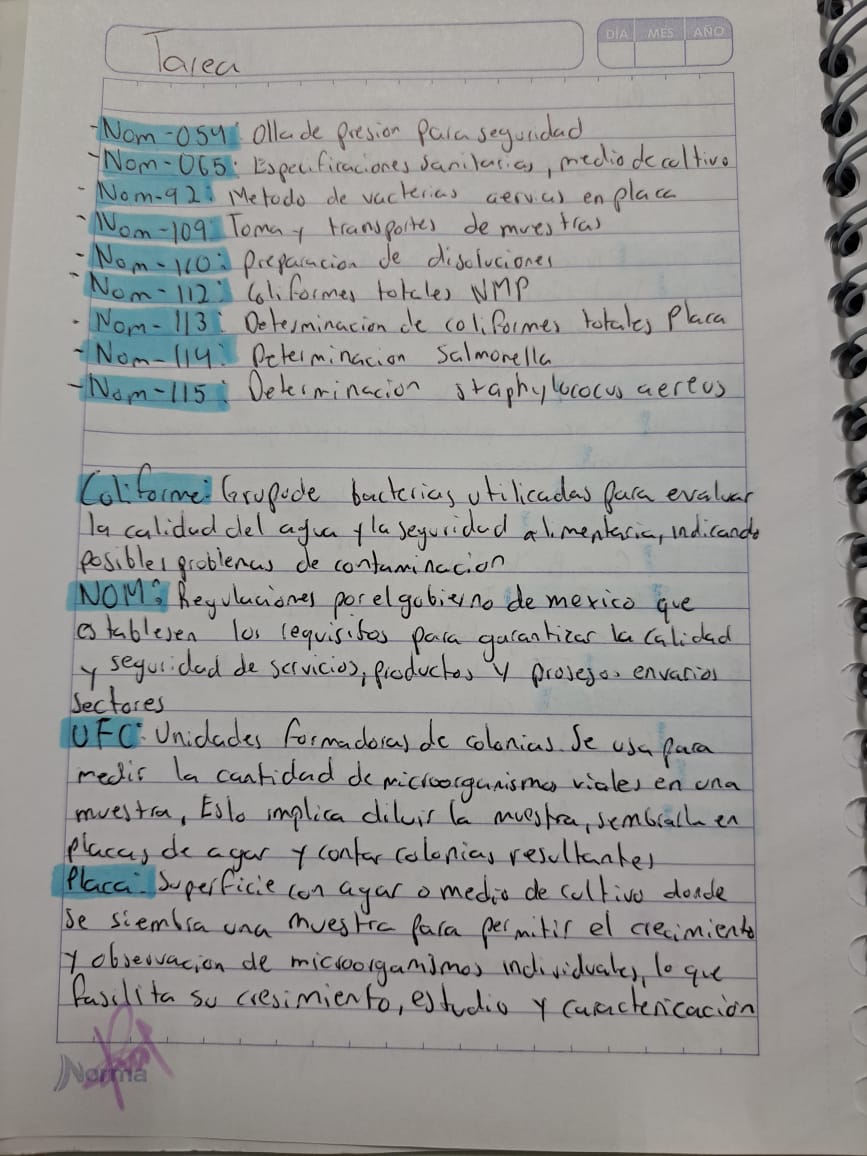 Tarea
DÍA MES AÑO
- Nom-054: Olla de presion para seguridad
- Nom-065: Especificaciones sanitarias, medio de coltivo
- Nom-92: Metodo de vacterias aervias en placa
- Nom-109: Toma y transportes de muestras
- Nom-110: preparacion de disoluciones
- Nom-112: Coliformes totales NMP
- Nom-113: Determinacion de coliformes totales Placa
- Nom-114: Determinacion Salmonella
- Nom-115: Determinacion staphylococus aereus
Coliforme: Grupo de bacterias utilicadas para evaluar
la calidad del agua y la seguridad alimentaria, indicando
posibles problemas de contaminacion
NOM: Regulaciones por el gobierno de mexico que
establesen los requisitos para garantizar la calidad
y seguridad de servicios, productos y prosesos en varios
sectores
UFC: Unidades formadoras de colonias. Se usa para
medir la cantidad de microorganismos viales en una
muestra, Esto implica diluir la muestra, sembrarla en
placas de agar y contar colonias resultantes
Placa: Superficie con agar o medio de cultivo donde
se siembra una muestra para permitir el crecimiento
y observacion de microorganismos individuales, lo que
fasilita su cresimiento, estudio y caractericación
Norma